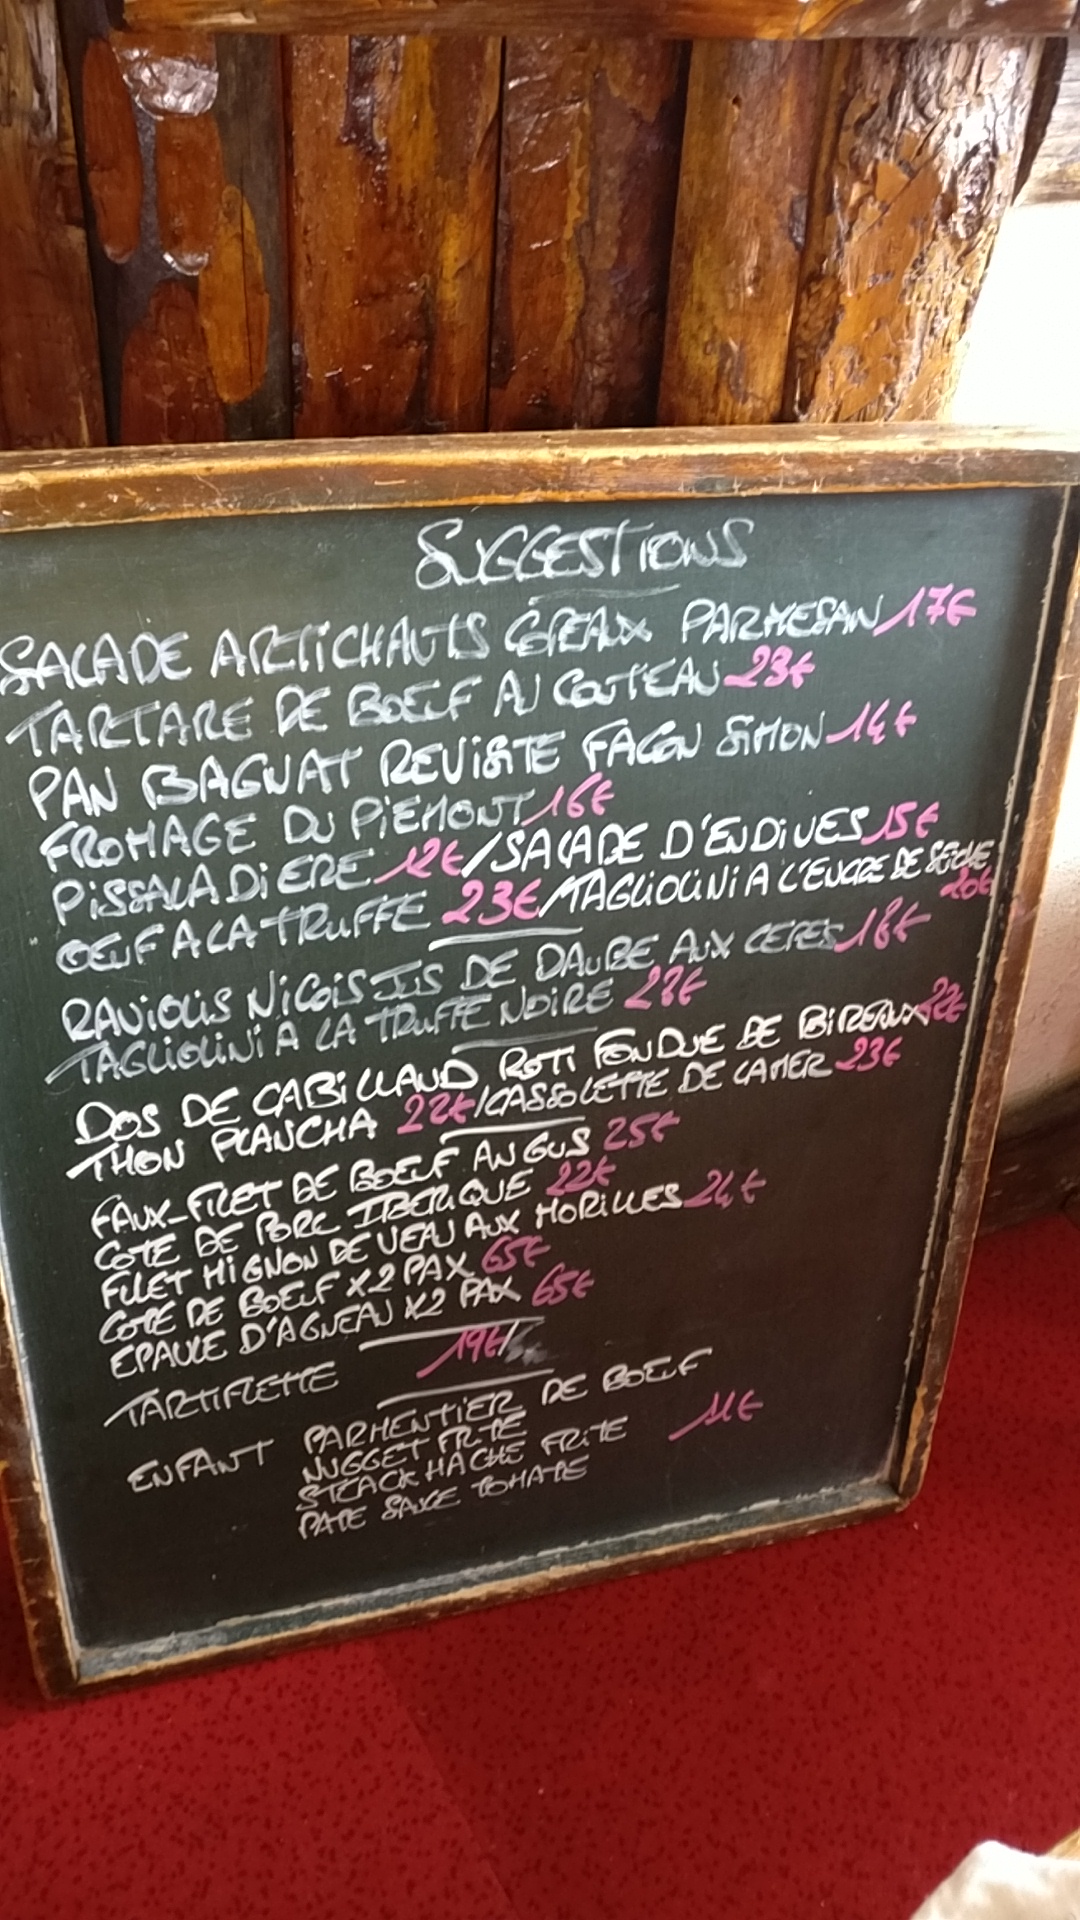 SUGGESTIONS
SALADE ARTICHAUTS COPEAUX PARMESAN 17€
TARTARE DE BOEUF AU COUTEAU 23€
PAN BAGNAT REVISITE FACON SIMON 14€
FROMAGE DU PIEMONT 16€
PISSALADIERE 12€/SALADE D'ENDIVES 15€
OEUF A LA TRUFFE 23€/TAGLIOLINI A L'ENCRE DE SEICHE 20€
RAVIOLIS NICOIS JUS DE DAUBE AUX CEPES 18€
TAGLIOLINI A LA TRUFFE NOIRE 28€
DOS DE CABILLAUD ROTI FONDUE DE POIREAUX 22€
THON PLANCHA 22€/CASSOLETTE DE LA MER 23€
FAUX-FILET DE BOEUF ANGUS 25€
COTE DE PORC IBERIQUE 22€
FILET MIGNON DE VEAU AUX MORILLES 24€
COTE DE BOEUF X2 PAX 65€
EPAULE D'AGNEAU X2 PAX 65€
TARTIFLETTE 19€/
ENFANT PARMENTIER DE BOEUF
NUGGET FRITE
STEACK HACHE FRITE 11€
PATE SAUCE TOMATE